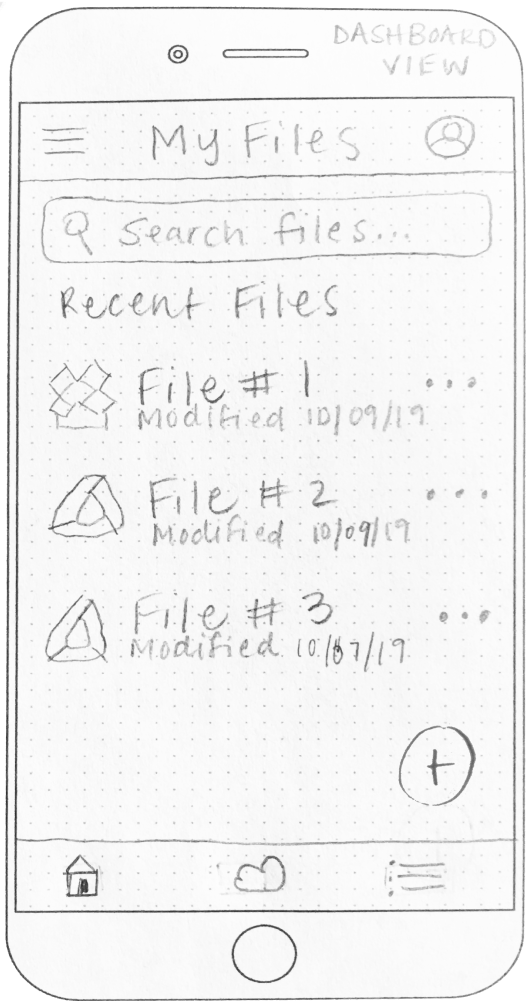 DASHBOARD
VIEW
My Files
Search files...
Recent Files
File # 1
Modified 10/09/19
File # 2
Modified 10/09/19
File # 3
Modified 10/07/19